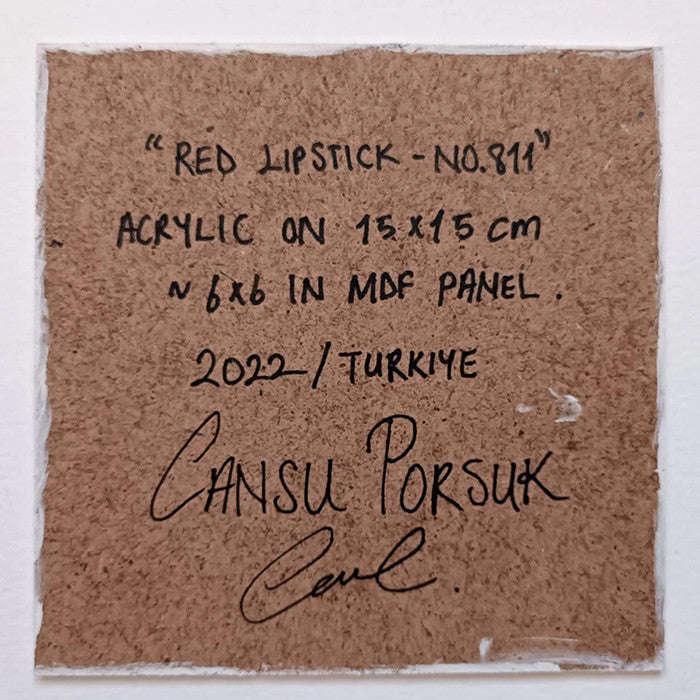 "RED LIPSTICK - NO.811"
ACRYLIC ON 15x15 cm
~ 6x6 IN MDF PANEL.
2022/TURKIYE
CANSU PORSUK